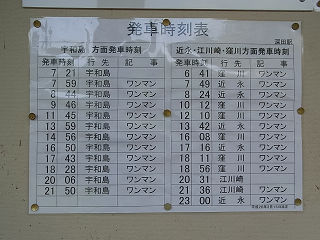 発車時刻表
深田駅
宇和島 方面発車時刻
発車時刻 行先 記事
7 21 宇和島
7 59 宇和島 ワンマン
8 44 宇和島 ワンマン
9 46 宇和島 ワンマン
11 45 宇和島 ワンマン
13 59 宇和島 ワンマン
14 56 宇和島 ワンマン
16 50 宇和島 ワンマン
17 43 宇和島 ワンマン
18 28 宇和島 ワンマン
20 06 宇和島 ワンマン
21 50 宇和島 ワンマン
近永・江川崎・窪川方面発車時刻
発車時刻 行先 記事
6 41 窪川 ワンマン
7 49 近永 ワンマン
8 24 近永 ワンマン
10 12 窪川 ワンマン
12 10 近永 ワンマン
13 42 近永 ワンマン
16 08 窪川 ワンマン
17 16 近永 ワンマン
18 11 窪川 ワンマン
18 56 窪川 ワンマン
20 31 江川崎
21 36 江川崎 ワンマン
23 00 近永 ワンマン